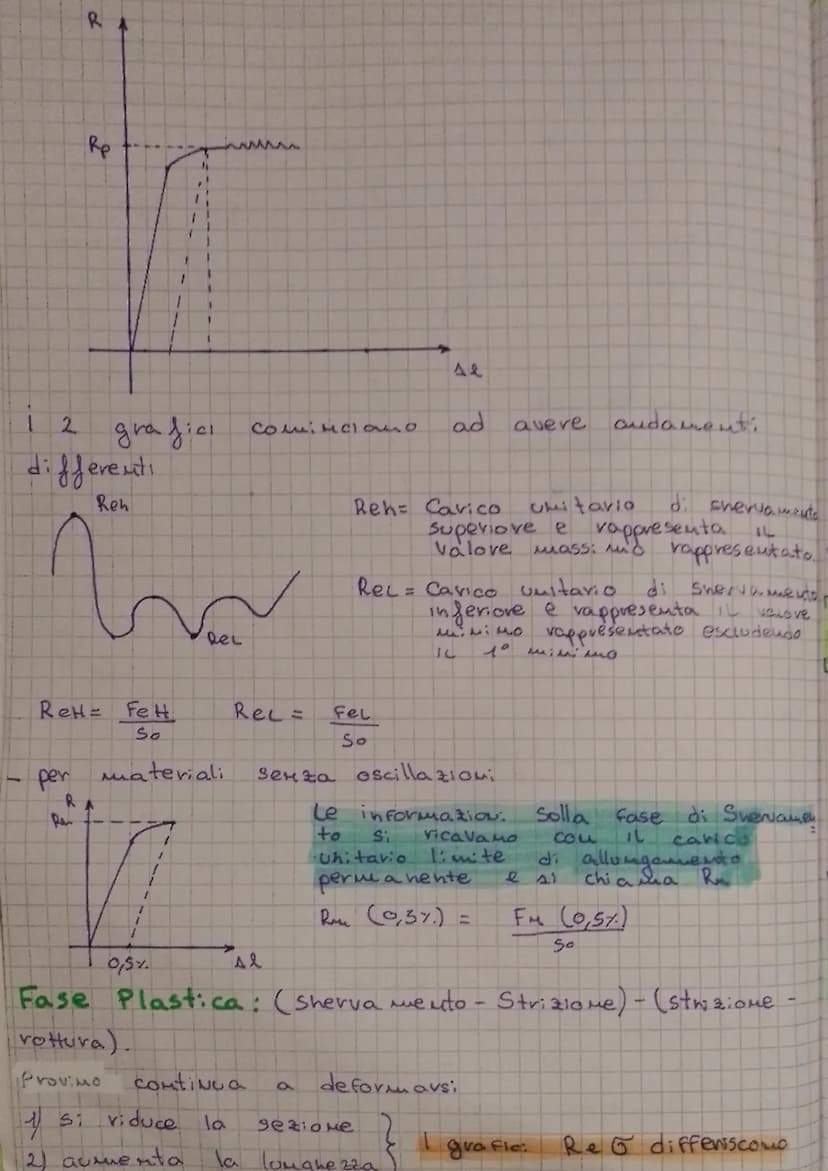 R
Rp
Δl
i 2 grafici cominciano ad avere andamenti
differenti
Reh
ReL
Reh = Carico unitario di snervamento
superiore e rappresenta il
valore massimo rappresentato
ReL = Carico unitario di snervamento
inferiore e rappresenta il valore
minimo rappresentato escludendo
il 1° minimo
ReH = FeH / So ReL = FeL / So
- per materiali senza oscillazioni
R
Rm
0,5%
Δl
Le informazioni Solla Fase di Snervamen
to si ricavano con il carico
unitario limite di allungamento
permanente e si chiama Rm
Rm (0,5%) = FM (0,5%) / So
Fase Plastica: (snervamento - Strizione) - (strizione -
rottura).
Provino continua a deformarsi
1) si riduce la sezione
2) aumenta la lunghezza
I grafici R e σ differiscono